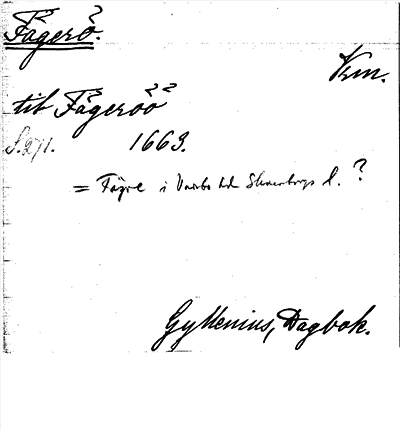 Fägerö.
Vrm.
till Fägeröö
S. 271. 1663.
= Fägre i Vadsbo hd Skaraborgs l. ?
Gyllenius, Dagbok.